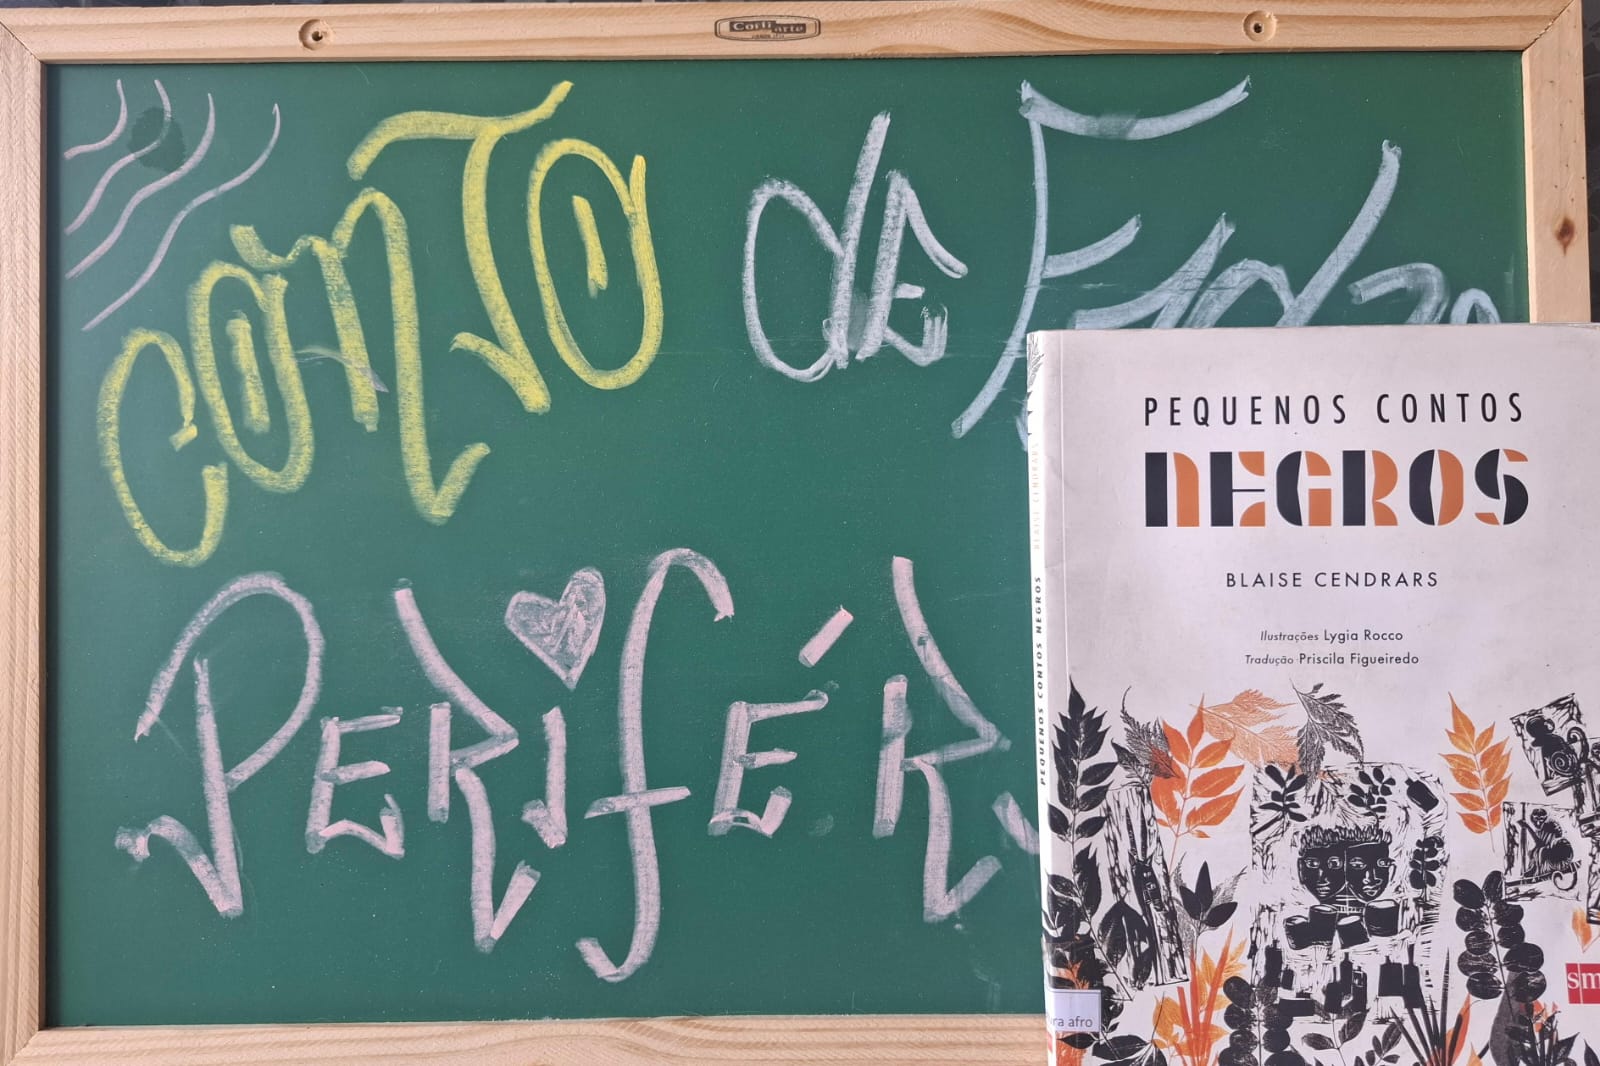 Cortiarte
CONTO de Fadas
PERIFÉR
PEQUENOS CONTOS
NEGROS
BLAISE CENDRARS
Ilustrações Lygia Rocco
Tradução Priscila Figueiredo
PEQUENOS CONTOS NEGROS BLAISE CENDRARS
sm
ra afro